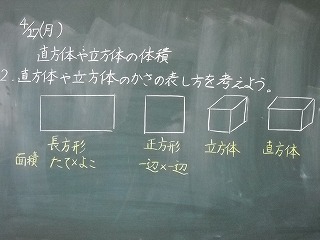 4/27(月)
直方体や立方体の体積
2.直方体や立方体のかさの表し方を考えよう。
長方形 正方形 立方体 直方体
面積 たて×よこ 一辺×一辺